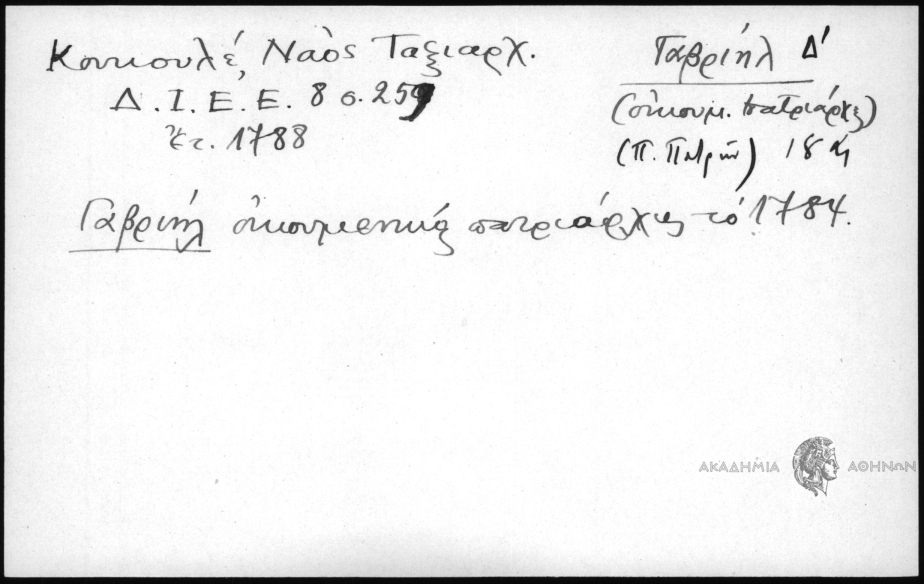 Κουκουλέ, Ναὸς Ταξιαρχ.
Δ. Ι. Ε. Ε. 8 σ. 259
ἔτ. 1788
Γαβριήλ Δ'
(οἰκουμ. πατριάρχης)
(Π. Πατρῶν) 18 
Γαβριήλ οἰκουμενικός πατριάρχης τό 1784.
ΑΚΑΔΗΜΙΑ ΑΘΗΝΩΝ